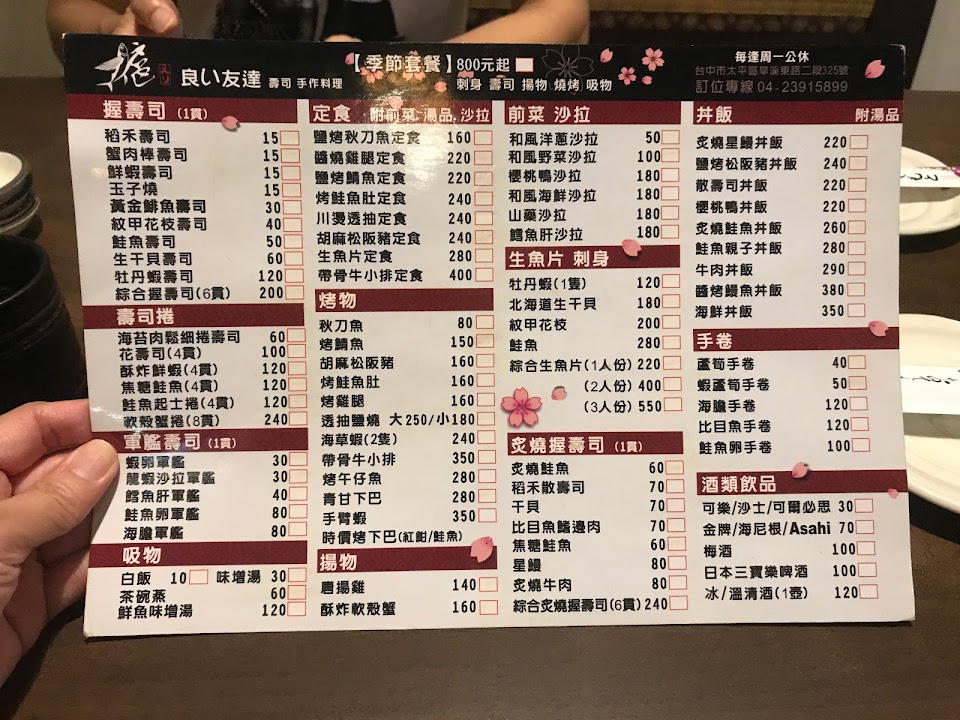 良い友達 壽司 手作料理
【季節套餐】800元起
刺身 壽司 揚物 燒烤 吸物
每逢周一公休
台中市太平區旱溪東路二段325號
訂位專線 04-23915899
握壽司 (1貫)
稻禾壽司 15
蟹肉棒壽司 15
鮮蝦壽司 15
玉子燒 15
黃金鯡魚壽司 30
紋甲花枝壽司 40
鮭魚壽司 50
生干貝壽司 60
牡丹蝦壽司 120
綜合握壽司(6貫) 200
壽司捲
海苔肉鬆細捲壽司 60
花壽司(4貫) 100
酥炸鮮蝦(4貫) 120
焦糖鮭魚(4貫) 120
鮭魚起士捲(4貫) 120
軟殼蟹捲(8貫) 240
軍艦壽司 (1貫)
蝦卵軍艦 30
龍蝦沙拉軍艦 30
鱈魚肝軍艦 40
鮭魚卵軍艦 80
海膽軍艦 80
吸物
白飯 10 味增湯 30
茶碗蒸 60
鮮魚味增湯 120
定食 附前菜 湯品 沙拉
鹽烤秋刀魚定食 160
醬燒雞腿定食 220
鹽烤鯖魚定食 220
烤鮭魚肚定食 240
川燙透抽定食 240
胡麻松阪豬定食 240
生魚片定食 280
帶骨牛小排定食 400
烤物
秋刀魚 80
烤鯖魚 150
胡麻松阪豬 160
烤鮭魚肚 160
烤雞腿 160
透抽鹽燒 大250/小180
海草蝦(2隻) 240
帶骨牛小排 350
烤午仔魚 280
青甘下巴 280
手臂蝦 350
時價烤下巴(紅魽/鮭魚)
揚物
唐揚雞 140
酥炸軟殼蟹 160
前菜 沙拉
和風洋蔥沙拉 50
和風野菜沙拉 100
櫻桃鴨沙拉 180
和風海鮮沙拉 180
山藥沙拉 180
鱈魚肝沙拉 180
生魚片 刺身
牡丹蝦(1隻) 120
北海道生干貝 180
紋甲花枝 200
鮭魚 280
綜合生魚片(1人份) 220
(2人份) 400
(3人份) 550
炙燒握壽司 (1貫)
炙燒鮭魚 60
稻禾散壽司 70
干貝 70
比目魚鰭邊肉 70
焦糖鮭魚 60
星鰻 80
炙燒牛肉 80
綜合炙燒握壽司(6貫) 240
丼飯 附湯品
炙燒星鰻丼飯 220
鹽烤松阪豬丼飯 240
散壽司丼飯 220
櫻桃鴨丼飯 220
炙燒鮭魚丼飯 260
鮭魚親子丼飯 280
牛肉丼飯 290
醬烤鰻魚丼飯 380
海鮮丼飯 350
手卷
蘆筍手卷 40
蝦蘆筍手卷 50
海膽手卷 120
比目魚手卷 120
鮭魚卵手卷 100
酒類飲品
可樂/沙士/可爾必思 30
金牌/海尼根/Asahi 70
梅酒 100
日本三寶樂啤酒 100
冰/溫清酒(1壺) 120